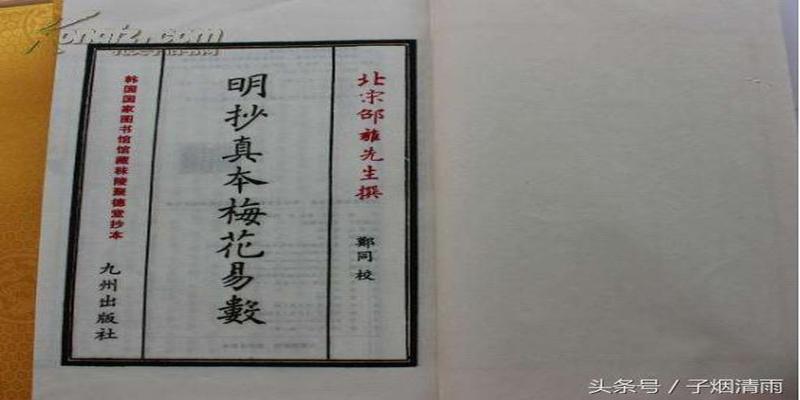 北宋邵雍先生撰
鄭同校
明抄真本梅花易數
韩国国家图书馆馆藏秣陵聚德堂抄本
九州出版社
Kongfz.com
头条号 / 子烟清雨